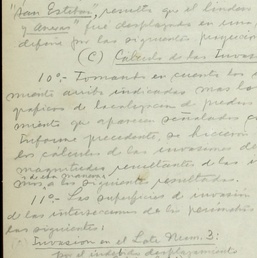 "San Esteban", resulta que el lindero
y Anexas" fué desplazado en una
defora por las siguientes proyeccio
(C) Cálculo de las Invasio
10º.- Tomando en cuenta los d
miento arriba indicados mas lo
gráficos de localizacion de predios
miento que aparecen señalados e
Informe precedente, se hicieron
los cálculos de las invasiones de
magnitudes resultantes de las
de esa manera,
mos, a los siguientes resultados.
11º.- Las superficies de invasión
de las intersecciones de los perímetros
las siguientes:
Invasion en el Lote Num. 3:
por el indebido desplazamiento